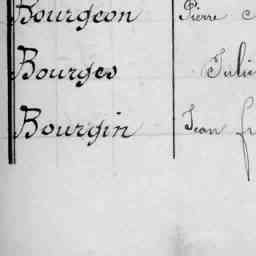 Bourgeon Pierre
Bourges
Bourgin Jean